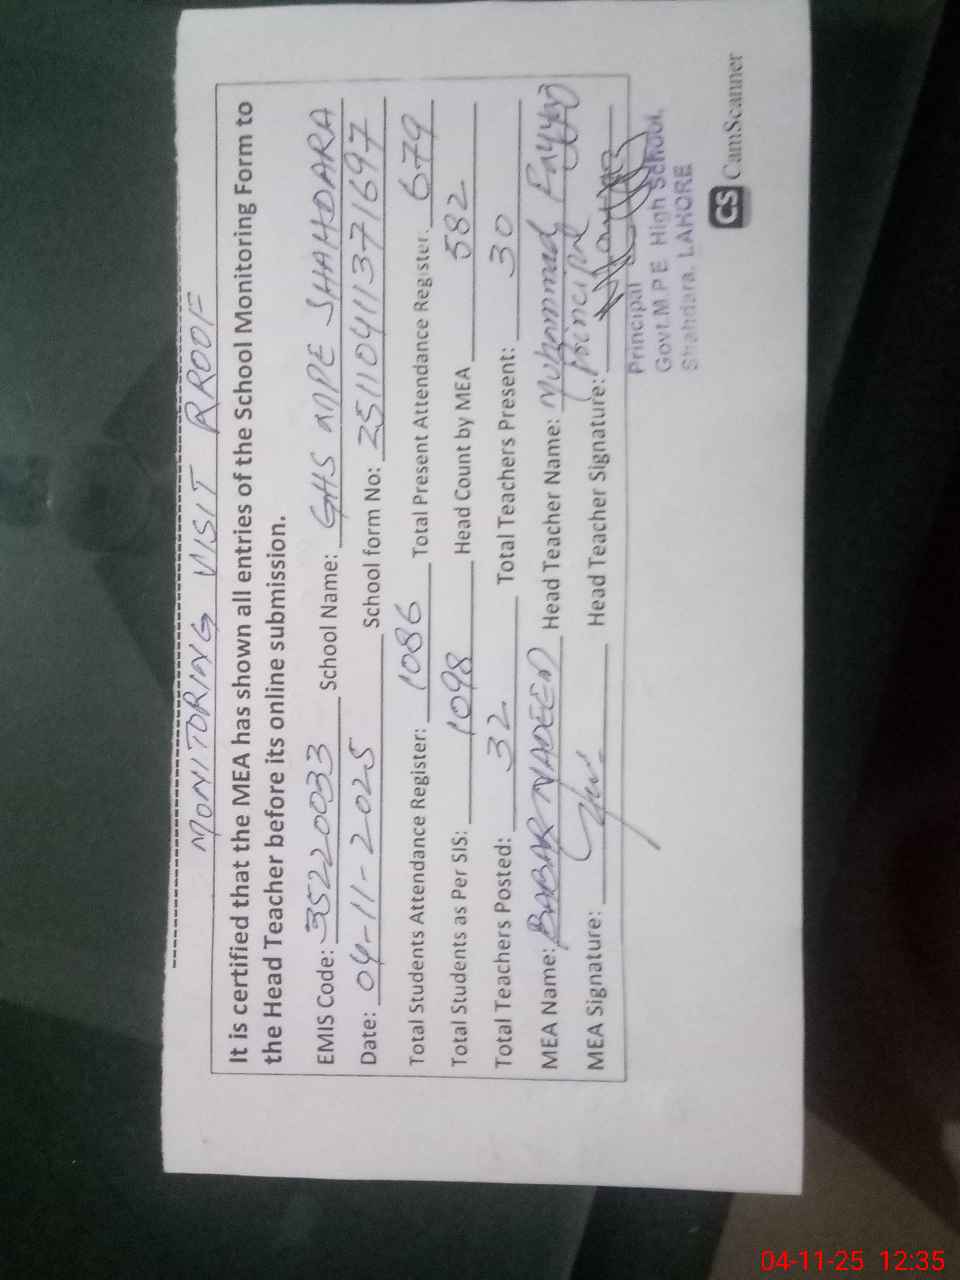 MONITORING VISIT PROOF
It is certified that the MEA has shown all entries of the School Monitoring Form to
the Head Teacher before its online submission.
EMIS Code: 35220033 School Name: GHS MPE SHAHDARA
Date: 04-11-2025 School form No: 2511041137 1697
Total Students Attendance Register: 1086 Total Present Attendance Register: 679
Total Students as Per SIS: 1098 Head Count by MEA 582
Total Teachers Posted: 32 Total Teachers Present: 30
MEA Name: BABAR NADEEM Head Teacher Name: Muhammad Fayyaz
Principal
MEA Signature: Head Teacher Signature:
Principal
Govt.M.P.E High School,
Shahdara, LAHORE
CS CamScanner
04-11-25 12:35